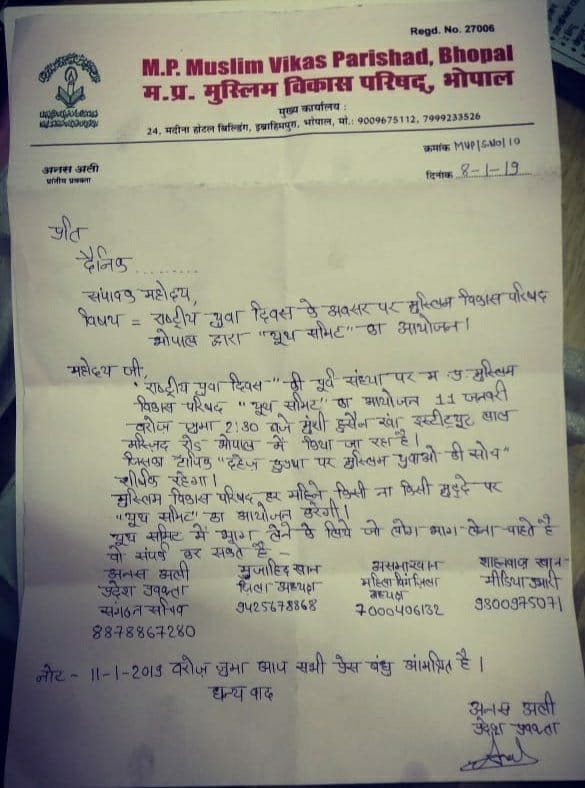 Regd. No. 27006
M.P. Muslim Vikas Parishad, Bhopal
म.प्र. मुस्लिम विकास परिषद्, भोपाल
मुख्य कार्यालय :
24, मदीना होटल बिल्डिंग, इब्राहिमपुरा, भोपाल, मो.: 9009675112, 7999233526
क्रमांक MVP/S.No/10
अनस अली
प्रांतीय प्रवक्ता
दिनांक 8-1-19
प्रति
दैनिक.........
संपादक महोदय,
विषय = राष्ट्रीय युवा दिवस के अवसर पर मुस्लिम विकास परिषद
भोपाल द्वारा "यूथ समिट" का आयोजन।
महोदय जी,
"राष्ट्रीय युवा दिवस" की पूर्व संध्या पर म प्र मुस्लिम
विकास परिषद "यूथ समिट" का आयोजन 11 जनवरी
बरोज जुमा 2:30 बजे मुंशी हुसैन खां इंस्टीट्यूट लाल
मस्जिद रोड भोपाल में किया जा रहा है।
जिसका टॉपिक "दहेज कुप्रथा पर मुस्लिम युवाओ की सोच"
शीर्षक रहेगा।
मुस्लिम विकास परिषद हर महिने किसी ना किसी मुद्दे पर
"यूथ समिट" का आयोजन करेगी।
यूथ समिट में भाग लेने के लिये जो लोग भाग लेना चाहते है
वो संपर्क कर सकते है -
अनस अली मुजाहिद खान असमा खान शाहनवाज खान
प्रदेश प्रवक्ता जिला अध्यक्ष महिला विंग जिला अध्यक्ष मीडिया प्रभारी
संगठन सचिव 9425678868 7000406132 9300975071
8878867280
नोट - 11-1-2019 बरोज जुमा आप सभी प्रेस बंधु आंमत्रित है।
धन्यवाद
अनस अली
प्रदेश प्रवक्ता